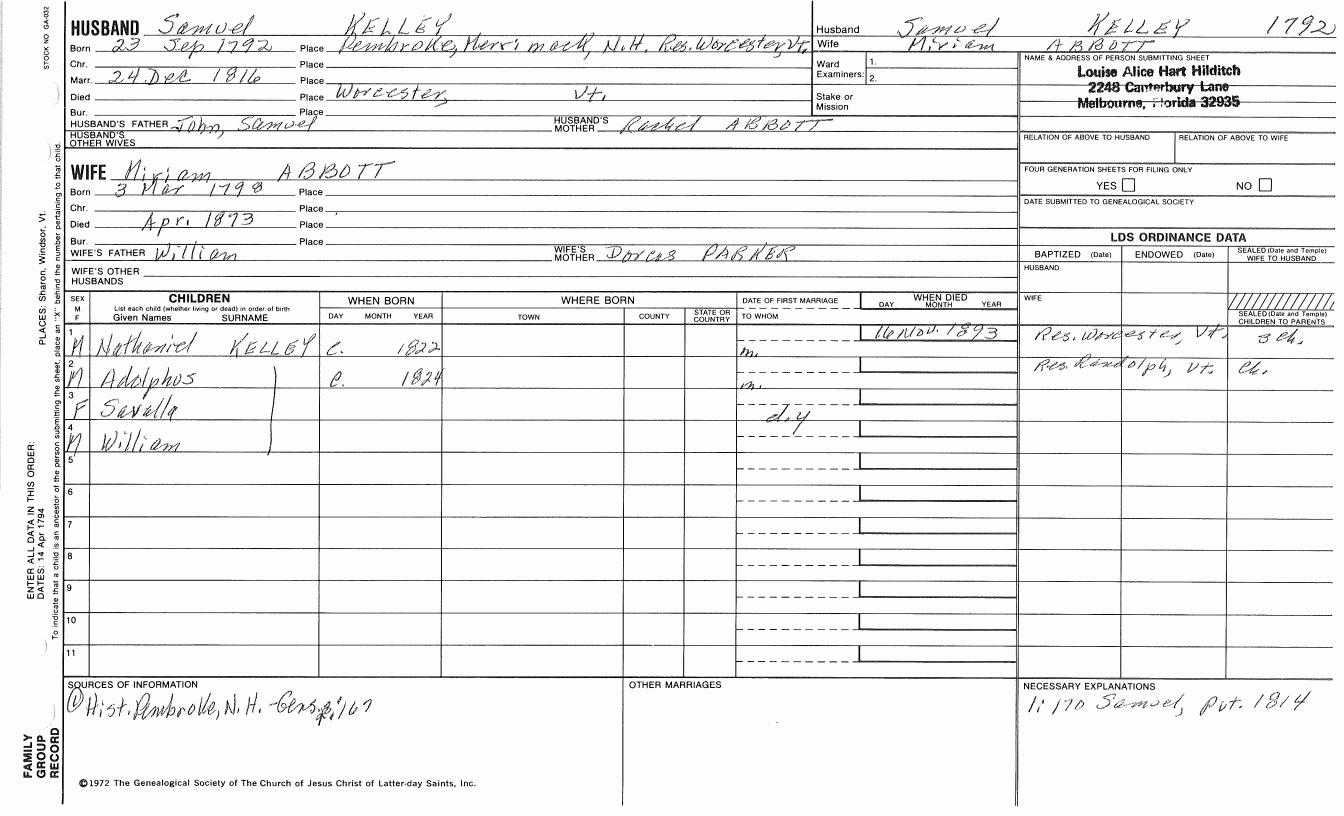 STOCK NO GA-032
PLACES: Sharon, Windsor, Vt.
ENTER ALL DATA IN THIS ORDER:
DATES: 14 Apr 1794
To indicate that a child is an ancestor of the person submitting the sheet, place an "X" behind the number pertaining to that child.
FAMILY
GROUP
RECORD
HUSBAND Samuel KELLEY
Born 23 Sep 1792 Place Pembroke, Merrimack, N.H. Res. Worcester, Vt.
Chr. Place
Marr. 24 Dec 1816 Place
Died Place Worcester, Vt.
Bur. Place
HUSBAND'S FATHER John, Samuel HUSBAND'S MOTHER Rachel ABBOTT
HUSBAND'S OTHER WIVES
WIFE Miriam ABBOTT
Born 3 Mar 1798 Place
Chr. Place
Died Apr. 1873 Place
Bur. Place
WIFE'S FATHER William WIFE'S MOTHER Dorcas PARKER
WIFE'S OTHER HUSBANDS
Husband Samuel KELLEY 1792
Wife Miriam ABBOTT
Ward Examiners: 1.
2.
Stake or Mission
NAME & ADDRESS OF PERSON SUBMITTING SHEET
Louise Alice Hart Hilditch
2248 Canterbury Lane
Melbourne, Florida 32935
RELATION OF ABOVE TO HUSBAND RELATION OF ABOVE TO WIFE
FOUR GENERATION SHEETS FOR FILING ONLY
YES NO
DATE SUBMITTED TO GENEALOGICAL SOCIETY
LDS ORDINANCE DATA
BAPTIZED (Date) ENDOWED (Date) SEALED (Date and Temple) WIFE TO HUSBAND
HUSBAND
WIFE
SEALED (Date and Temple) CHILDREN TO PARENTS
SEX M F CHILDREN WHEN BORN WHERE BORN DATE OF FIRST MARRIAGE WHEN DIED
List each child (whether living or dead) in order of birth
Given Names SURNAME DAY MONTH YEAR TOWN COUNTY STATE OR COUNTRY TO WHOM DAY MONTH YEAR
1 M Nathaniel KELLEY c. 1822 m. 16 Nov. 1893 Res. Worcester, Vt. 3 ch.
2 M Adolphos c. 1824 m. Res. Randolph, Vt. ch.
3 F Savalla d.y
4 M William
5
6
7
8
9
10
11
SOURCES OF INFORMATION
① Hist. Pembroke, N.H. -Gens. p. 167
OTHER MARRIAGES
NECESSARY EXPLANATIONS
1: 170 Samuel, pvt. 1814
©1972 The Genealogical Society of The Church of Jesus Christ of Latter-day Saints, Inc.